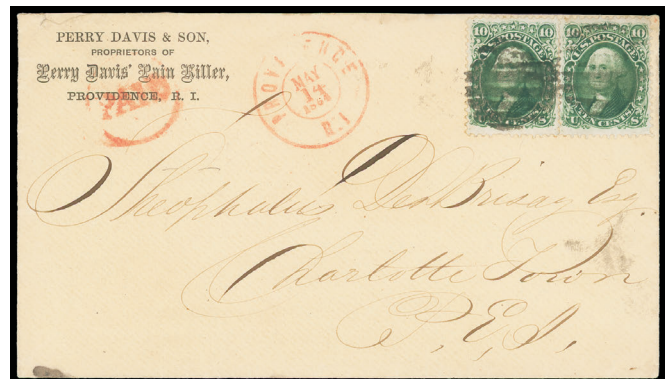 PERRY DAVIS & SON,
PROPRIETORS OF
Perry Davis' Pain Killer,
PROVIDENCE, R. I.
PAID
PROVIDENCE
MAY
14
R.I
10 10
U.S. POSTAGE
10 10
U.S. POSTAGE
Theophalus DesBrisay Esq
Charlotte Town
P. E. I.